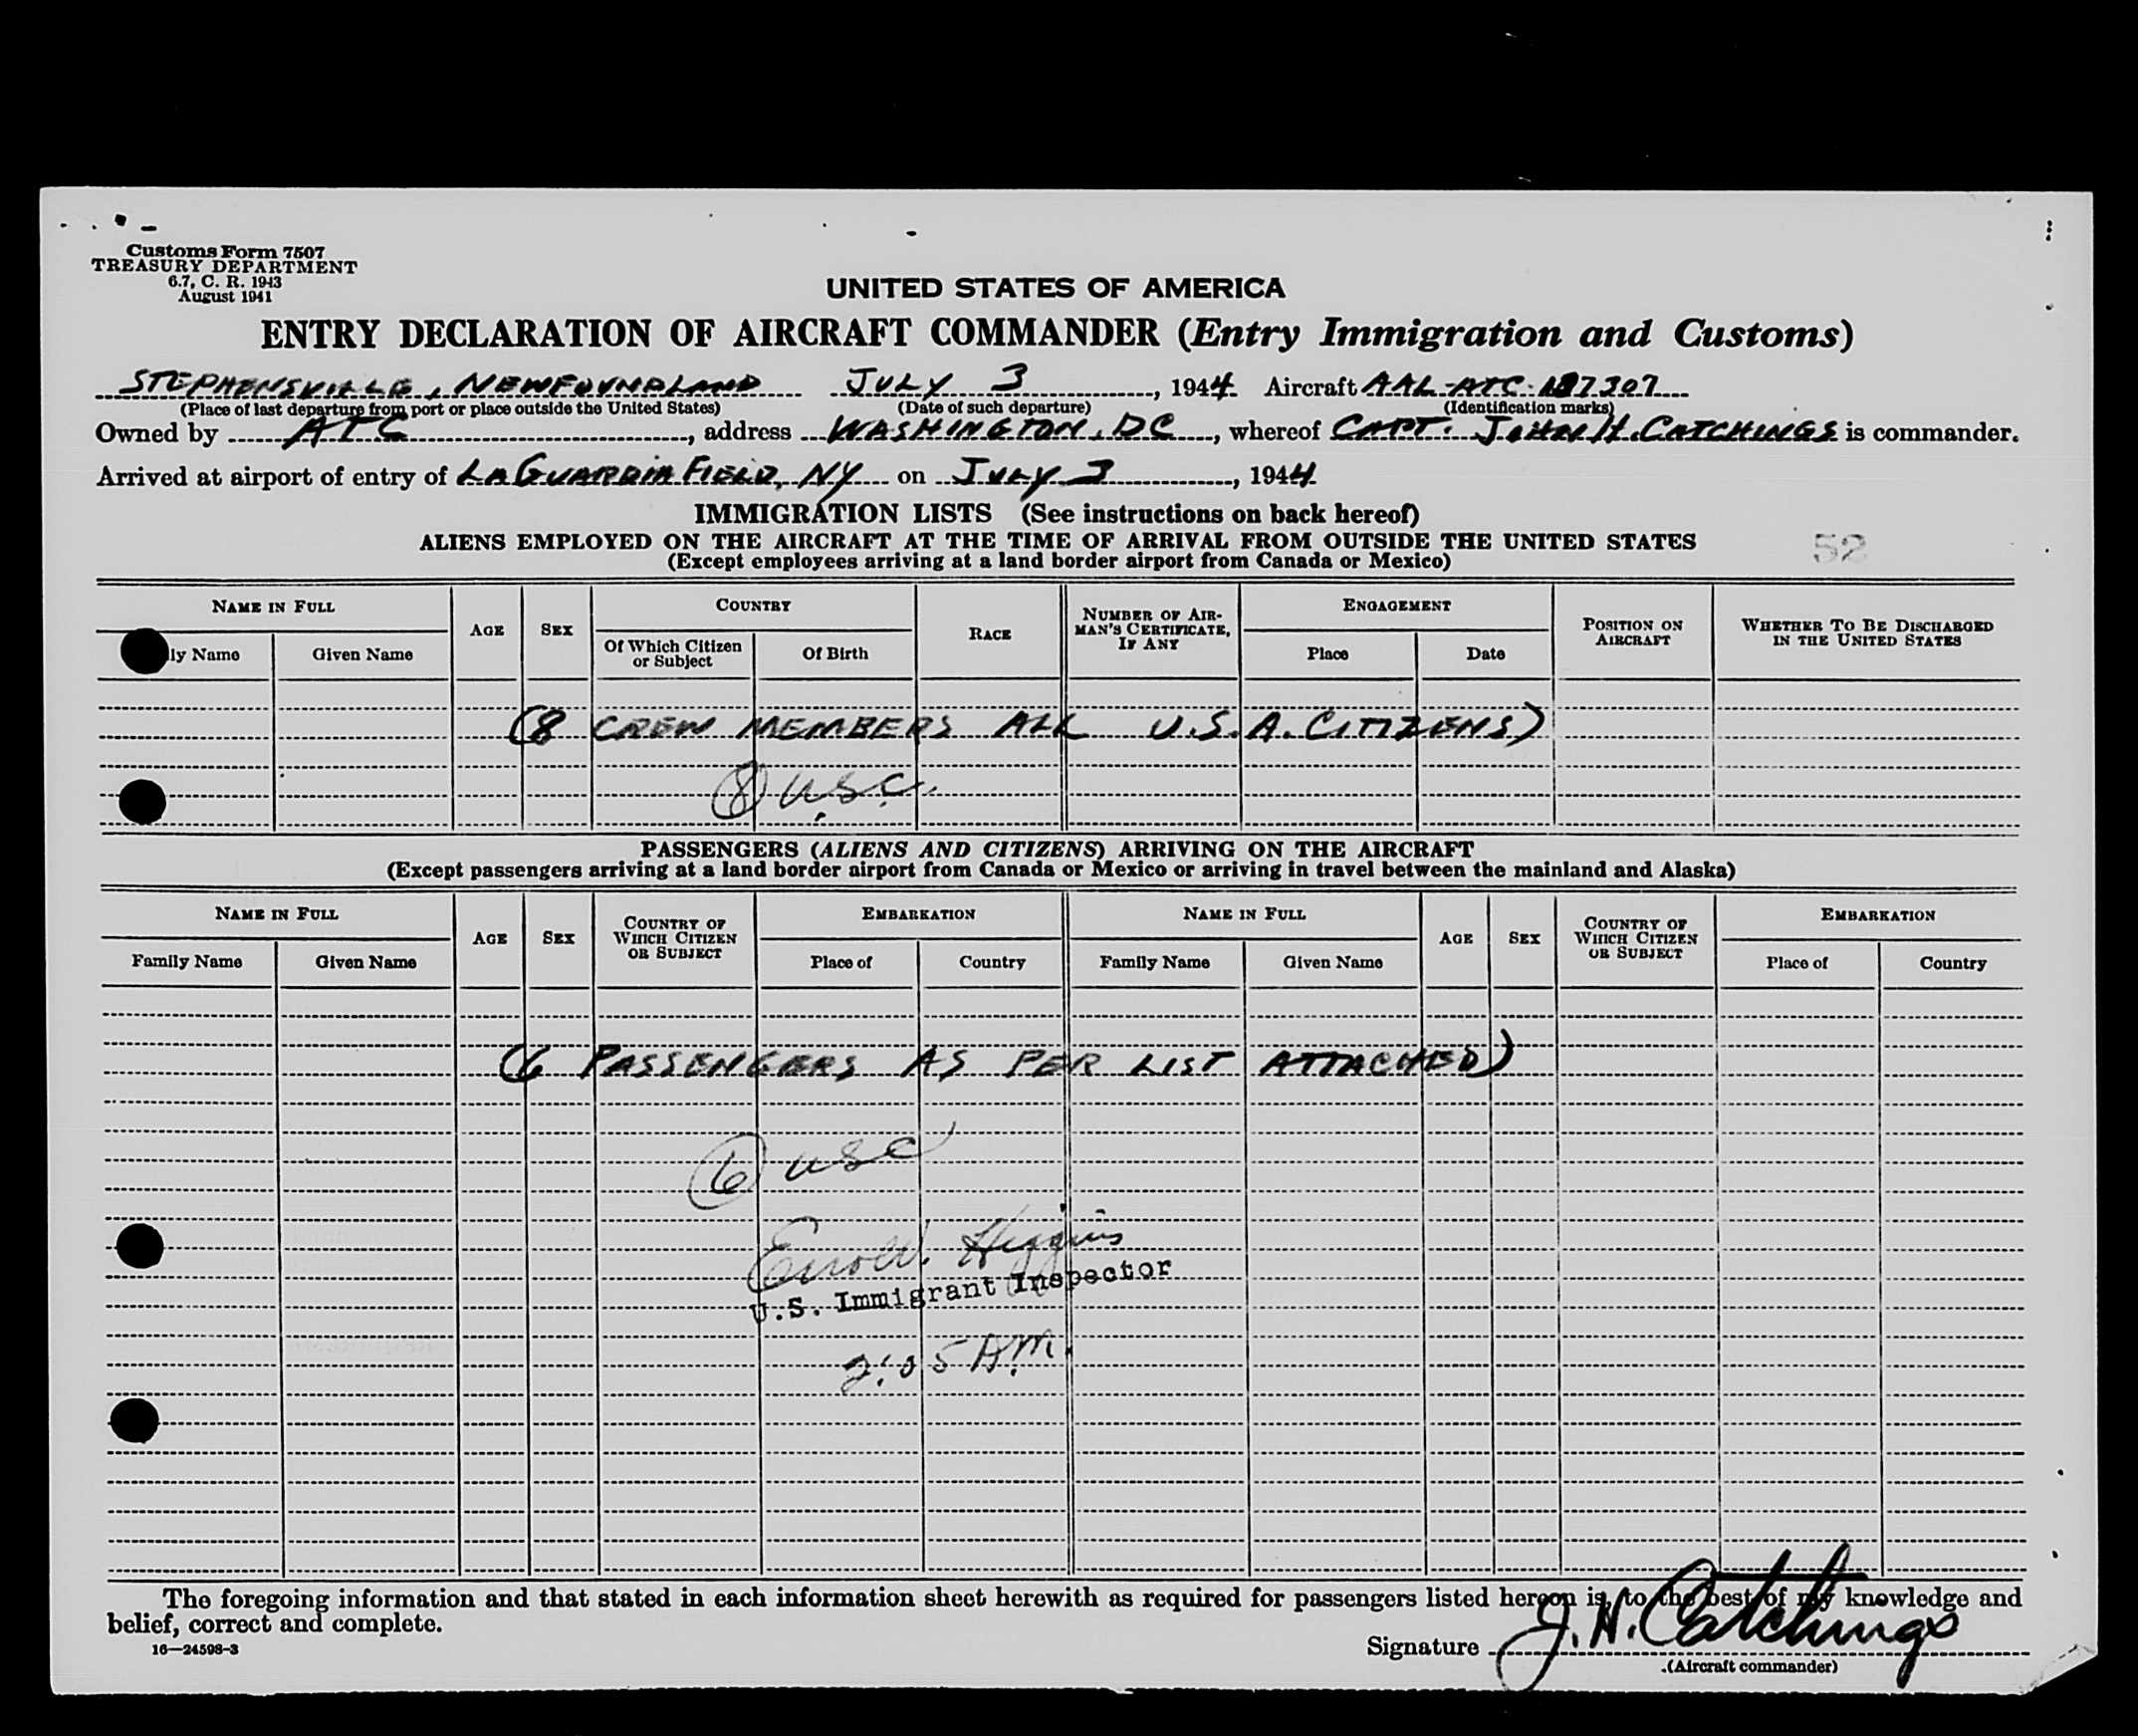 Customs Form 7507
TREASURY DEPARTMENT
6.7, C. R. 1943
August 1941
UNITED STATES OF AMERICA
ENTRY DECLARATION OF AIRCRAFT COMMANDER (Entry Immigration and Customs)
STEPHENSVILLE, NEWFOUNDLAND JULY 3, 1944 Aircraft AAL-ATC-
(Place of last departure from port or place outside the United States) (Date of such departure) (Identification marks)
Owned by ATC, address WASHINGTON, DC, whereof CAPT. JOHN H. CATCHINGS is commander.
Arrived at airport of entry of LAGUARDIA FIELD, NY on JULY 3, 1944
IMMIGRATION LISTS (See instructions on back hereof)
ALIENS EMPLOYED ON THE AIRCRAFT AT THE TIME OF ARRIVAL FROM OUTSIDE THE UNITED STATES
52
(Except employees arriving at a land border airport from Canada or Mexico)
NAME IN FULL AGE SEX COUNTRY RACE NUMBER OF AIRMAN'S CERTIFICATE, IF ANY ENGAGEMENT POSITION ON AIRCRAFT WHETHER TO BE DISCHARGED IN THE UNITED STATES
ly Name Given Name Of Which Citizen or Subject Of Birth Place Date
(8 CREW MEMBERS ALL U.S.A. CITIZENS)
8 USC.
PASSENGERS (ALIENS AND CITIZENS) ARRIVING ON THE AIRCRAFT
(Except passengers arriving at a land border airport from Canada or Mexico or arriving in travel between the mainland and Alaska)
NAME IN FULL AGE SEX COUNTRY OF WHICH CITIZEN OR SUBJECT EMBARKATION NAME IN FULL AGE SEX COUNTRY OF WHICH CITIZEN OR SUBJECT EMBARKATION
Family Name Given Name Place of Country Family Name Given Name Place of Country
(6 PASSENGERS AS PER LIST ATTACHED)
6 USC
Higgins
U.S. Immigrant Inspector
2:05 AM.
The foregoing information and that stated in each information sheet herewith as required for passengers listed hereon is, to the best of my knowledge and
belief, correct and complete.
16—24598-3
Signature J. H. Catchings
(Aircraft commander)